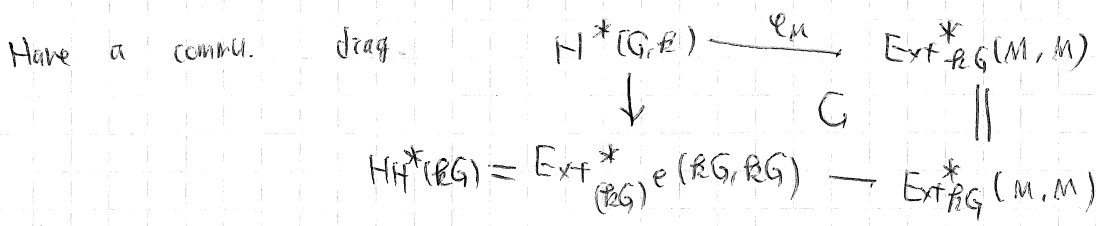 Have a commu. diag. H*(G,k) φ_M → Ext*_{kG}(M,M)
↓ ↺ ||
HH*(kG) = Ext*_{(kG)^e}(kG,kG) — Ext*_{kG}(M,M)